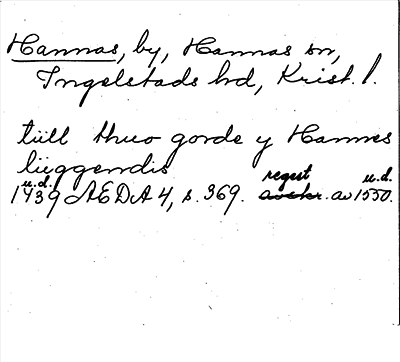 Hannas, by, Hannas sn,
Ingelstads hd, Krist. l.
till thuo gorde y Hannes
liiggendis
u.d. regest u.d.
1439 ÆDA 4, s. 369. avskr. av 1550.